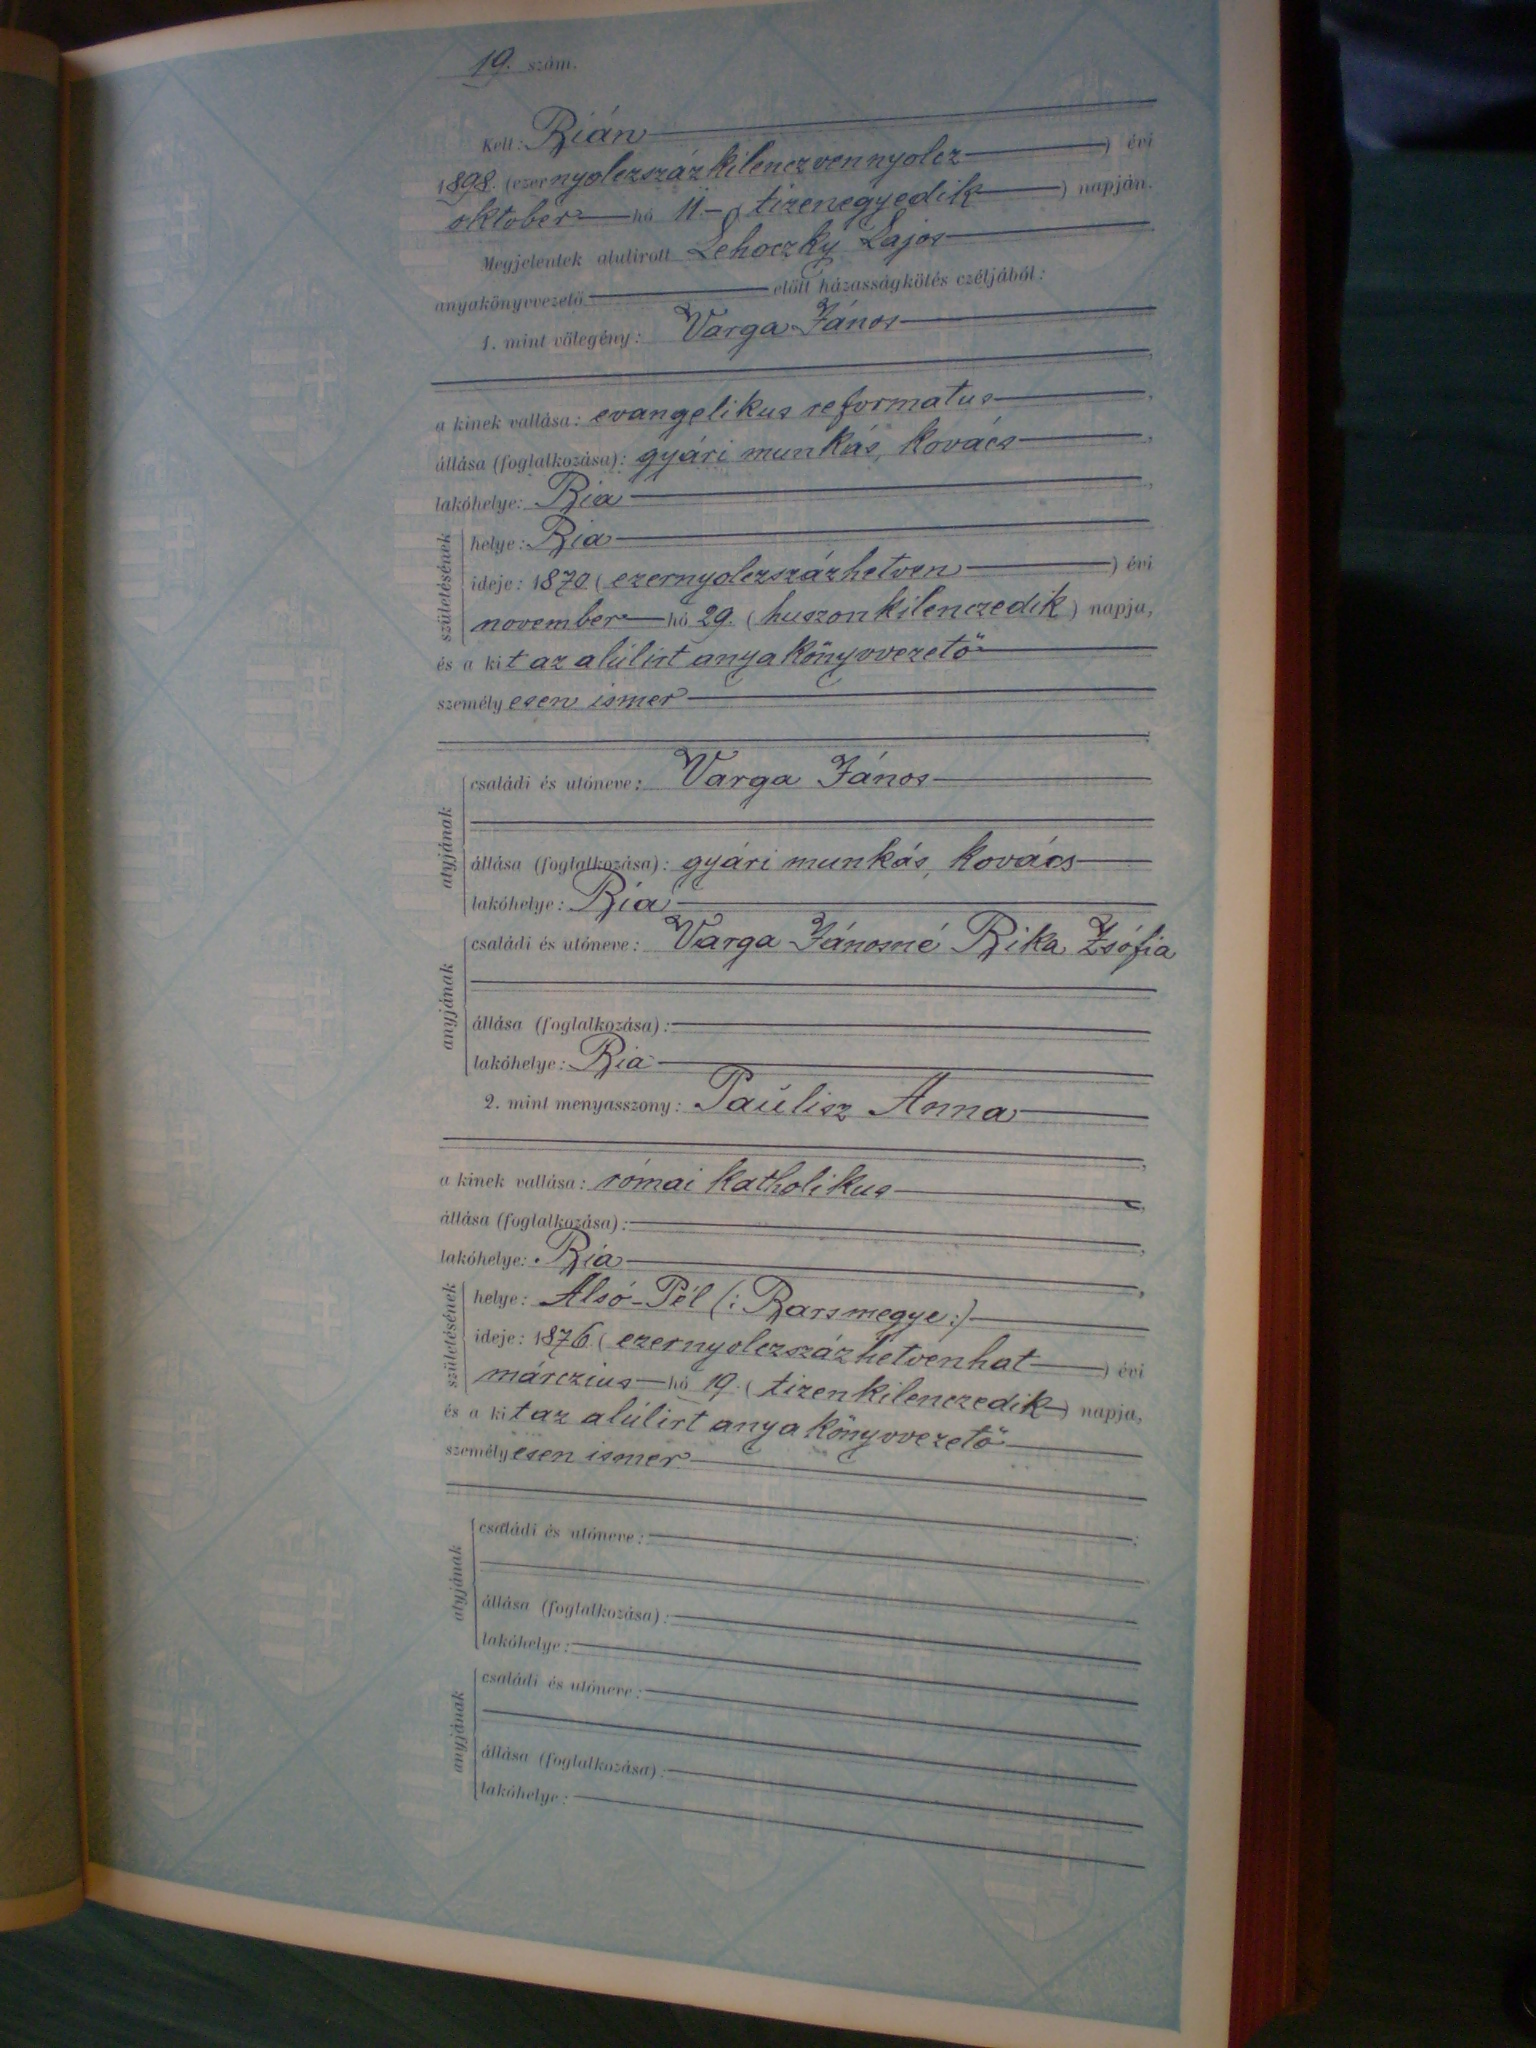 19. szám.
Kelt: Bián
1898. (ezernyolczszázkilenczvennyolcz) évi
oktober hó 11. (tizenegyedik) napján.
Megjelentek alulirott Lehoczky Lajos
anyakönyvvezető előtt házasságkötés czéljából:
1. mint vőlegény: Varga János
a kinek vallása: evangelikus reformatus,
állása (foglalkozása): gyári munkás, kovács,
lakóhelye: Bia,
születésének
helye: Bia
ideje: 1870 (ezernyolczszázhetven) évi
november hó 29. (huszonkilenczedik) napja,
és a kit az alúlirt anyakönyvvezető
személyesen ismer
atyjának
családi és utóneve: Varga János
állása (foglalkozása): gyári munkás, kovács
lakóhelye: Bia
anyjának
családi és utóneve: Varga Jánosné Bika Zsófia
állása (foglalkozása):
lakóhelye: Bia
2. mint menyasszony: Paulisz Anna
a kinek vallása: római katholikus,
állása (foglalkozása):
lakóhelye: Bia,
születésének
helye: Alsó-Pél (: Barsmegye :)
ideje: 1876. (ezernyolczszázhetvenhat) évi
márczius hó 19. (tizenkilenczedik) napja,
és a kit az alúlirt anyakönyvvezető
személyesen ismer
atyjának
családi és utóneve:
állása (foglalkozása):
lakóhelye:
anyjának
családi és utóneve:
állása (foglalkozása):
lakóhelye: